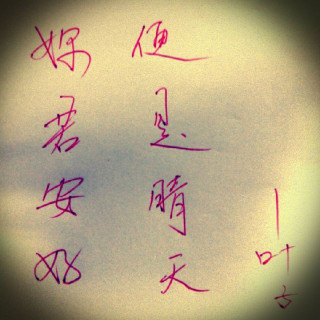 妳若安好
便是晴天
—叶子